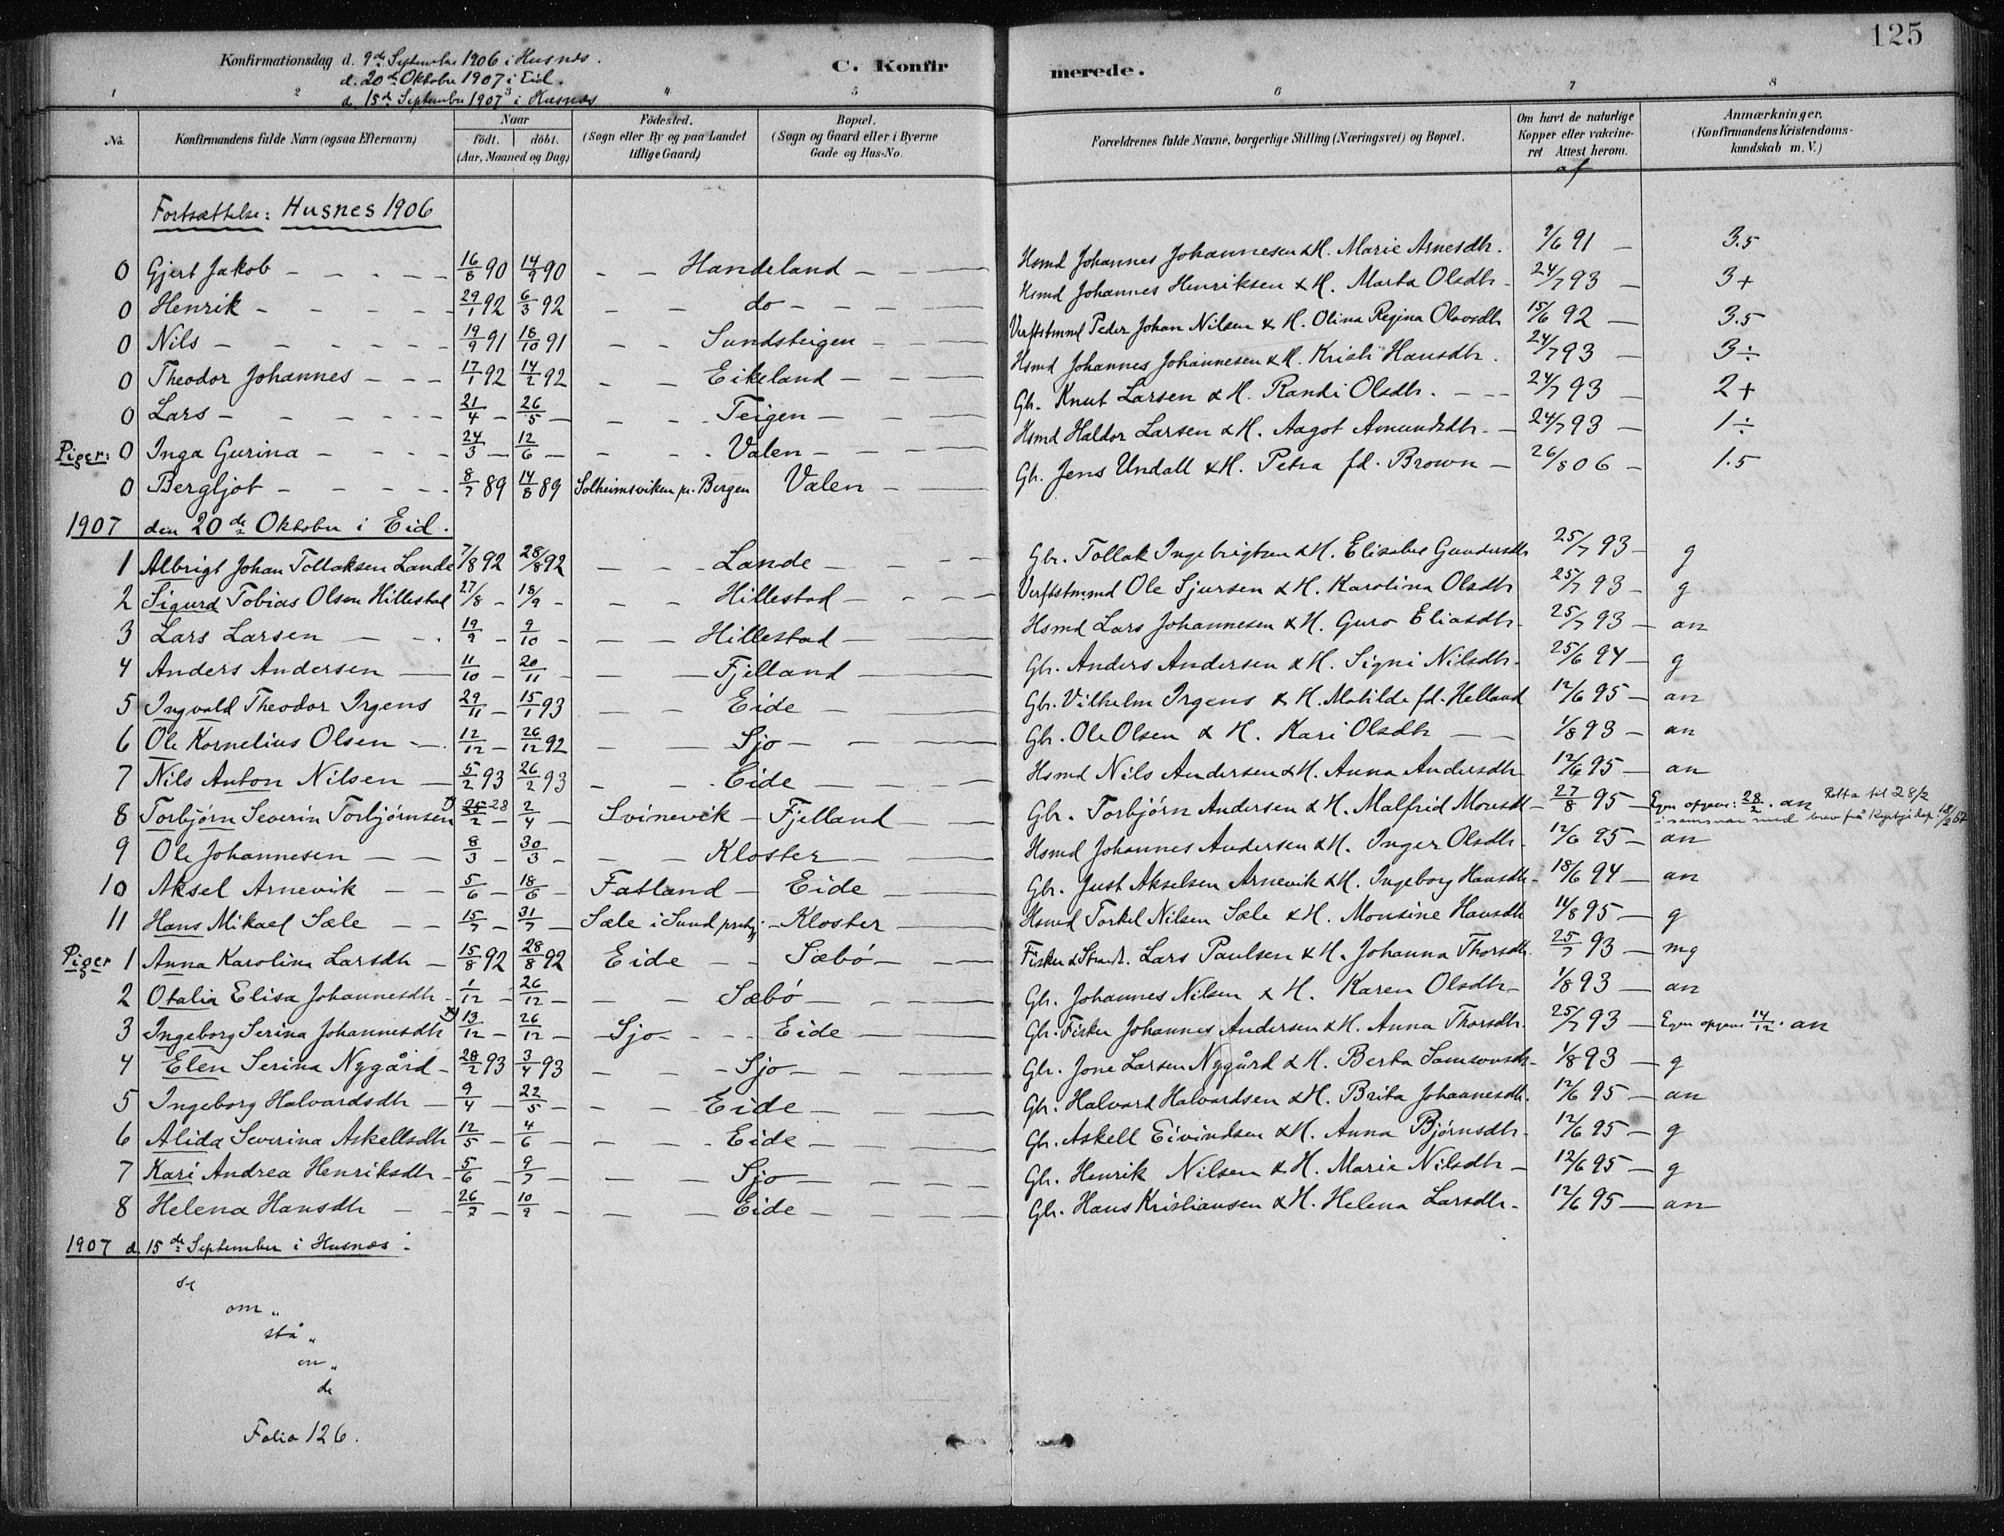 125
Konfirmationsdag d. 9de September 1906 i Husnes.
d. 20de Oktober 1907 i Eid.
d. 15de September 1907 i Husnes
C. Konfirmerede.
1 2 3 4 5 6 7 8
No. Konfirmandens fulde Navn (ogsaa Efternavn) Naar födt. döbt. (Aar, Maaned og Dag) Födested. (Sogn eller By og paa Landet tillige Gaard) Bopæl. (Sogn og Gaard eller i Byerne Gade og Hus-No. Forældrenes fulde Navne, borgerlige Stilling (Næringsvei) og Bopæl. Om havt de naturlige Kopper eller vakcineret Attest herom. af Anmærkninger. (Konfirmandens Kristendomskundskab m. V.)
Fortsættelse: Husnes 1906
0 Gjert Jakob 16/8 90 14/9 90 Handeland Hsmd Johannes Johannesen & H. Marie Arnesdtr. 9/6 91 3.5
0 Henrik 29/1 92 6/3 92 do Hsmd Johannes Henriksen & H. Marta Olsdtr 24/7 93 3+
0 Nils 19/9 91 18/10 91 Sundsteigen Verftstmmd Peder Johan Nilsen & H. Olina Regina Olavsdtr 15/6 92 3.5
0 Theodor Johannes 17/1 92 14/2 92 Eikeland Hsmd Johannes Johannesen & H. Kristi Hansdtr. 24/7 93 3÷
0 Lars 21/4 26/5 Teigen Gbr. Knut Larsen & H. Randi Olsdtr. 24/7 93 2+
Piger: 0 Inga Gurina 24/3 12/6 Valen Hsmd Haldor Larsen & H. Aagot Amundsdtr. 24/7 93 1÷
0 Bergljot 8/7 89 14/8 89 Solheimsviken pr. Bergen Valen Gb. Jens Undall & H. Petra fd. Brown 26/8 06 1.5
1907 den 20de Oktober i Eid.
1 Albrigt Johan Tollaksen Lande 7/8 92 28/8 92 Lande Gbr. Tollak Ingebrigtsen & H. Elisabet Gundersdtr 25/7 93 g
2 Sigurd Tobias Olsen Hillestad 27/8 18/9 Hillestad Verftstmmd Ole Sjursen & H. Karolina Olsdtr 25/7 93 g
3 Lars Larsen 19/9 9/10 Hillestad Hsmd Lars Johannesen & H. Guro Eliasdtr. 25/7 93 an
4 Anders Andersen 11/10 20/11 Fjelland Gbr. Anders Andersen & H. Signi Nilsdtr. 25/6 94 g
5 Ingvald Theodor Irgens 29/11 15/1 93 Eide Gbr. Vilhelm Irgens & H. Matilde fd. Helland 12/6 95 an
6 Ole Kornelius Olsen 12/12 26/12 92 Sjo Gbr. Ole Olsen & H. Kari Olsdtr 1/8 93 an
7 Nils Anton Nilsen 5/2 93 26/2 93 Eide Hsmd Nils Andersen & H. Anna Andersdtr 12/6 95 an
8 Torbjørn Severin Torbjørnsen 25/2 28 2/4 Svinevik Fjelland Gbr. Torbjørn Andersen & H. Malfrid Monsdtr 27/8 95 Egen opgave: 28/2. an Retta til 28/2
i samsvar med brev frå 18/2
9 Ole Johannesen 8/3 30/3 Kloster Hsmd Johannes Andersen & H. Inger Olsdtr. 12/6 95 an
10 Aksel Arnevik 5/6 18/6 Fatland Eide Gbr. Just Akselsen Arnevik & H. Ingeborg Hansdtr. 18/6 94 an
11 Hans Mikael Sæle 15/7 31/7 Sæle i Sund Kloster Hsmd Torkel Nilsen Sæle & H. Monsine Hansdtr 14/8 95 g
Piger 1 Anna Karolina Larsdtr 15/8 92 28/8 92 Eide Sæbø Fisker & Strands. Lars Paulsen & H. Johanna Thorsdtr. 25/7 93 mg
2 Otalia Elisa Johannesdtr 1/12 26/12 Sæbø Gbr. Johannes Nilsen & H. Karen Olsdtr 1/8 93 an
3 Ingeborg Serina Johannesdtr 13/12 26/12 Sjo Eide Gbr. Fisker Johannes Andersen & H. Anna Thorsdtr. 25/7 93 Egen opgave 14/12. an
4 Elen Serina Nygård 28/2 93 3/4 93 Sjo Gbr. Jone Larsen Nygård & H. Berta Samsonsdtr 1/8 93 g
5 Ingeborg Halvardsdtr 9/4 22/5 Eide Gbr. Halvard Halvardsen & H. Brita Johannesdtr. 12/6 95 an
6 Alida Severina Askellsdtr 12/5 4/6 Eide Gbr. Askell Eivindsen & H. Anna Bjørnsdtr. 12/6 95 g
7 Kari Andrea Henriksdtr 5/6 9/7 Sjo Gbr. Henrik Nilsen & H. Marie Nilsdtr 12/6 95 g
8 Helena Hansdtr 26/7 10/9 Eide Gbr. Hans Kristiansen & H. Helena Larsdtr. 12/6 95 an
1907 d. 15de September i Husnes:
se
om „
stå „
en „
de
Folio 126.